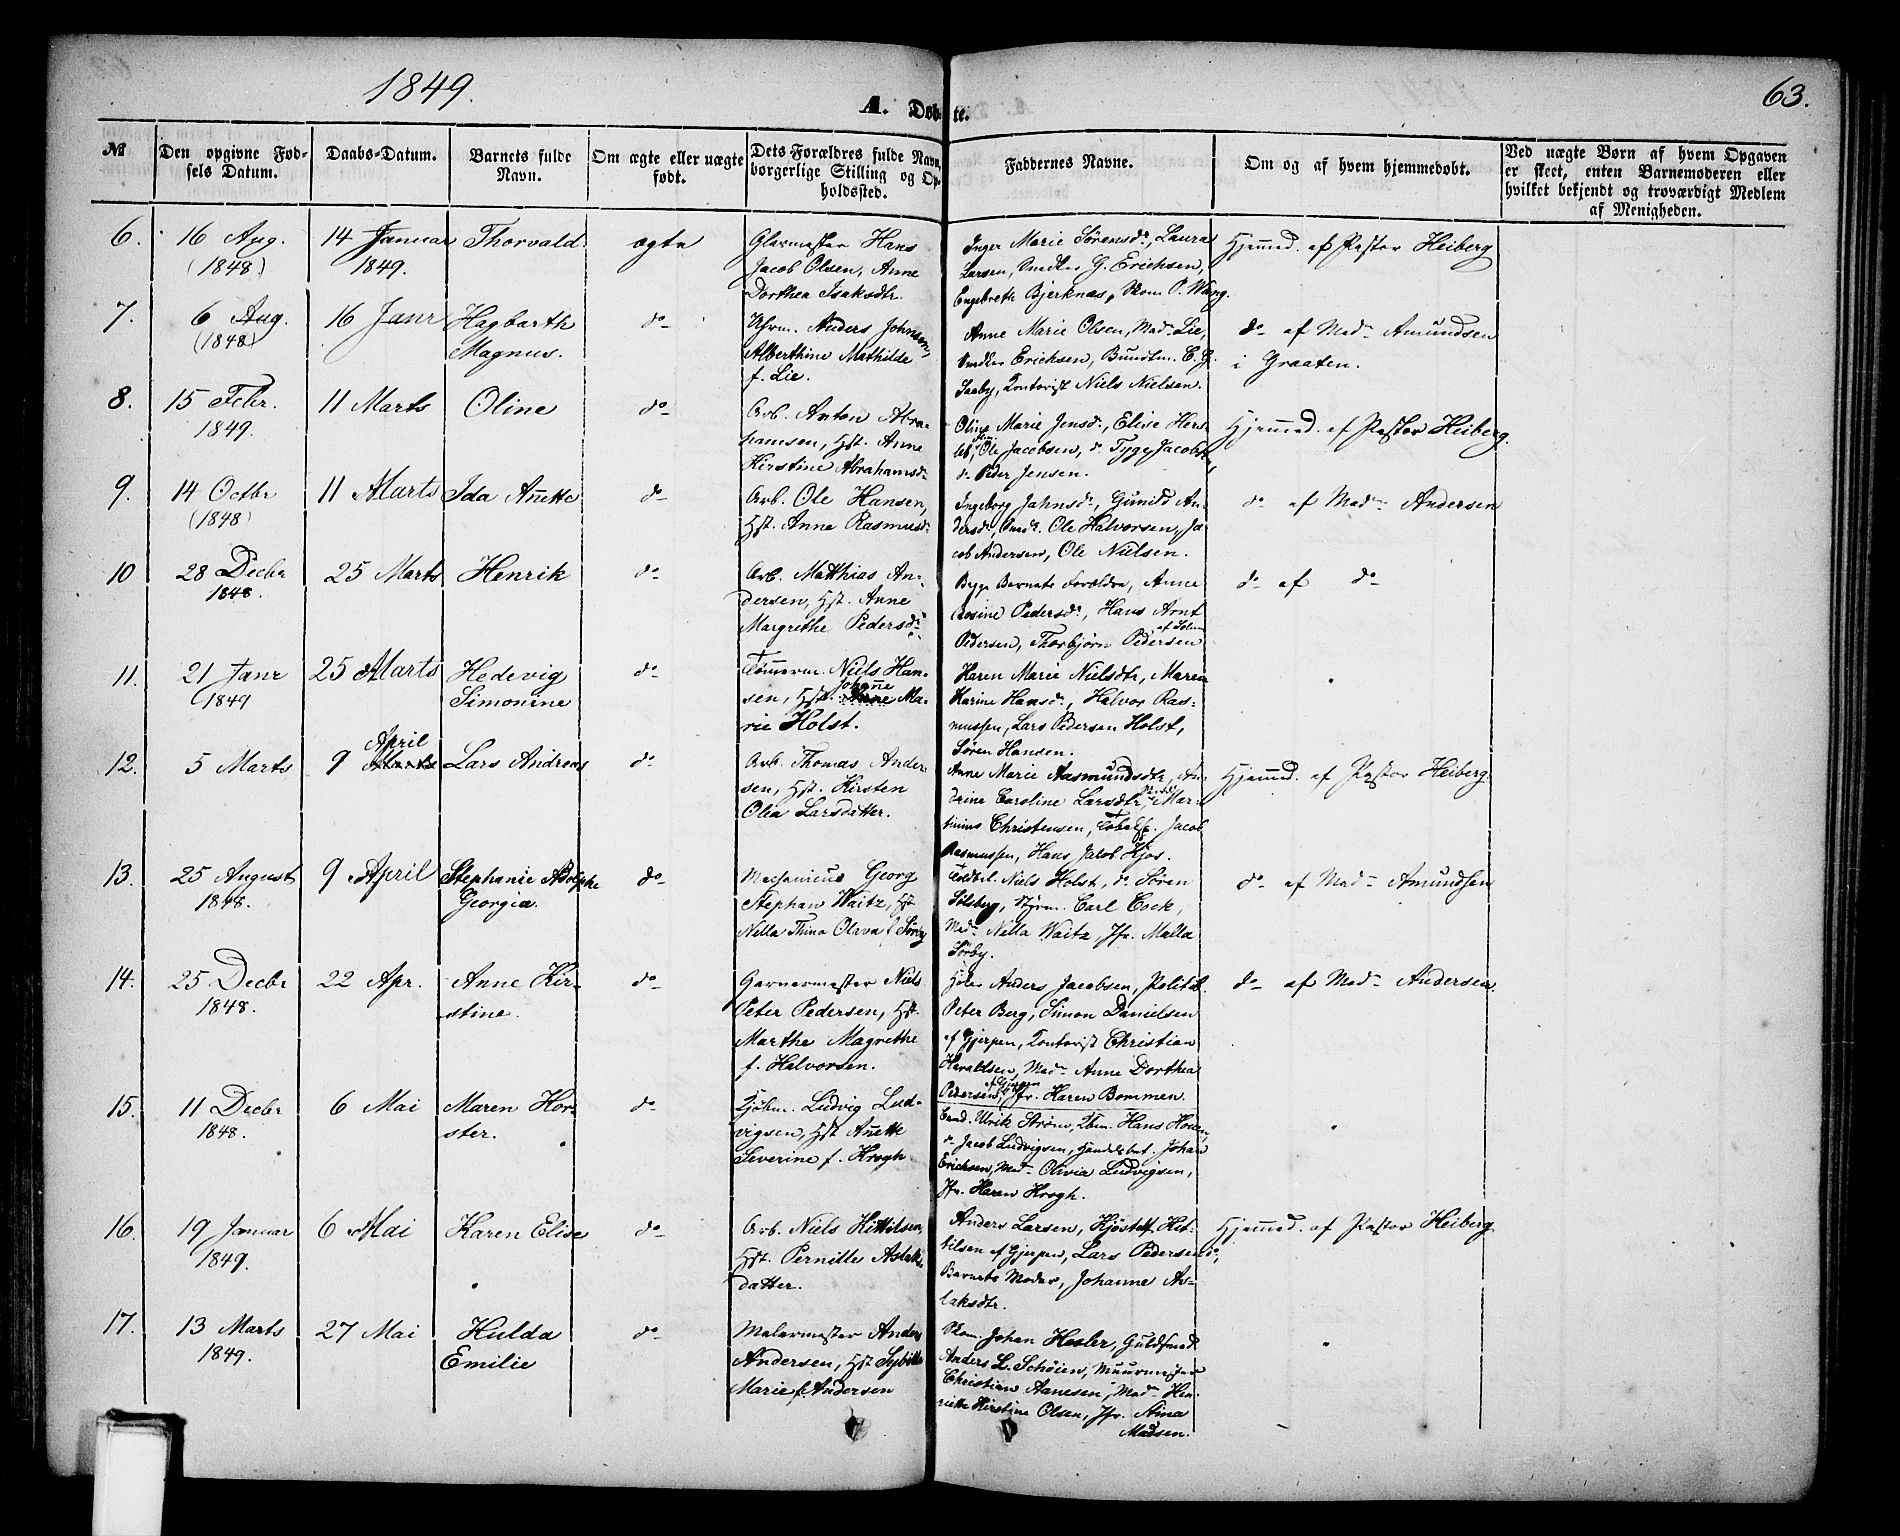 1849.
A. Døbte.
63.
No
Den opgivne Fødsels Datum.
Daabs-Datum.
Barnets fulde Navn.
Om ægte eller uægte født.
Dets Forældres fulde Navn, borgerlige Stilling og Opholdssted.
Faddernes Navne.
Om og af hvem hjemmedøbt.
Ved uægte Børn af hvem Opgaven er skeet, enten Barnemoderen eller hvilket bekjendt og troværdigt Medlem af Menigheden.
6. 16 Aug. (1848) 14 Januar 1849. Thorvald ægte
Glarmester Hans
Jacob Olsen, Anne
Dorthea Isaksdtr.
Inger Marie Sørensdr, Laura
Larsen, Smedker G. Erichsen,
Engebreth Bjerknæs, Skom. P. Wang.
Hjemmed. af Pastor Heiberg
7. 6 Aug. (1848) 16 Janr Hagbarth Magnus. do
Anders Johnsen,
Alberthine Mathilde
f. Lie.
Anne Marie Olsen, Mad. Lie,
Erichsen, Bundtm. C. G.
Saaby, Contorist Niels Nielsen.
do af Mad. Amundsen
i Graaten.
8. 15 Febr. 1849. 11 Marts Oline do
Arb. Anton Abra-
hamsen, Hst. Anne
Kirstine Abrahamsdr
Oline Marie Jensdr, Elise Hers-
leb, Ole Jacobsen, do Tyge Jacobsen,
do Peder Jensen.
Hjemmed. af Pastor Heiberg.
9. 14 Octbr (1848) 11 Marts Ida Anette do
Arb. Ole Hansen,
Hst. Anne Rasmusdr
Ingeborg Jahnsdr, Gunild An-
dersdr, Smedk. Ole Halvorsen, Ja-
cob Andersen, Ole Nielsen.
do af Mad. Andersen
10 28 Decbr 1848. 25 Marts Henrik do
Arb. Matthias An-
dersen, Hst. Anne
Margrethe Pedersdr.
Begge Barnets Forældre, Anne
Rosine Pedersdr, Hans Arnt
Pedersen, Thorbjørn Pedersen af Solum
do af do
11. 21 Janr 1849 25 Marts Hedevig Simonine do
Tømmerm. Niels Han-
sen, Hst. Johanne Ma-
rie Holst.
Karen Marie Nielsdtr, Maren
Karine Hansdr, Halvor Ras-
mussen, Lars Pedersen Holst,
Søren Hansen.
12. 5 Marts 9 April Lars Andreas do
Arb. Thomas Ander-
sen, Hst. Kirsten
Olea Larsdatter.
Anne Marie Aasmundsdtr, An-
drine Caroline Larsdtr, Mar-
tinius Christensen, Jacob
Rasmussen, Hans Jacob Kjos.
Hjemmed. af Pastor Heiberg.
13. 25 August 1848. 9 April Stephanie Adolphe Georgia. do
Mechanicus Georg
Stephan Waitz, Hst
Nella Thina Olava f. Sørby
Toldbet. Niels Holst, do Søren
Solberg, Styrm. Carl Cock,
Mad. Nella Waitz, Jfr. Malla
Sørby.
do af Mad. Amundsen
14. 25 Decbr 1848. 22 Apr. Anne Kir-stine. do
Garvermester Niels
Peter Pedersen, Hst.
Marthe Magrethe
f. Halvorsen.
Anders Jacobsen, Politib.
Peter Berg, Simon Danielsen
af Gjerpen, Contorist Christian
Haraldsen, Mad. Anne Dorthea
Pedersen af Gjerpen, Jfr. Karen Bommen.
do af Mad. Andersen.
15. 11 Decbr 1848. 6 Mai Maren Hor-ster. do
Kjøbm. Ludvig Lud-
vigsen, Hst Anette
Severine f. Krogh.
Cand. Ulrik Strøm, Kbm. Hans Houen,
do Jacob Ludvigsen, Handelsbet. Johan
Erichsen, Mad. Olivia Ludvigsen,
Jfr. Karen Krogh.
16. 19 Januar 1849. 6 Mai Karen Elise do
Arb. Niels Kittilsen,
Hst. Pernille Aslaks-
datter.
Anders Larsen, Kjøstolf Kit-
tilsen af Gjerpen, Lars Pedersen do,
Barnets Moder, Johanne As-
laksdtr.
Hjemmed. af Pastor Heiberg.
17. 13 Marts 1849. 27 Mai Hulda Emilie do
Malermester Anders
Andersen, Hst Sybille
Marie f. Andersen
Skom. Johan Hesler, Guldsmed
Anders L. Schøien, Muurmester
Christian Aanesen, Mad. Hen-
riette Kirstine Olsen, Jfr. Stina
Madsen.